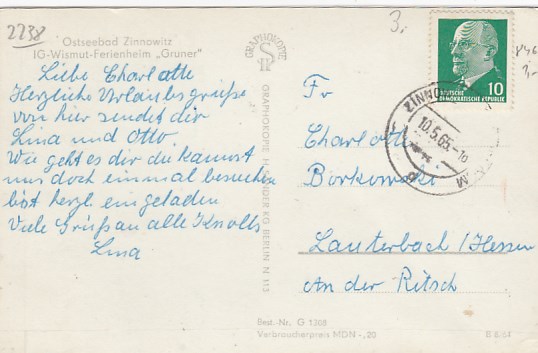 2238
3,-
Ostseebad Zinnowitz
IG-Wismut-Ferienheim „Gruner"
Liebe Charlotte
Herzliche Urlaubsgrüße
von hier sendet dir
Lina und Otto.
Wie geht es dir du kannst
uns doch einmal besuchen
bist herzl eingeladen
Viele Grüß an alle Knolls
Lina
GRAPHOKOPIE
GRAPHOKOPIE H. SANDER KG BERLIN N 113
DEUTSCHE
DEMOKRATISCHE REPUBLIK
10
10.5.65.-10
Fr
Charlott
Borkowski
Lauterbach/Hessen
An der Ritsch
Best.-Nr. G 1308
Verbraucherpreis MDN -,20